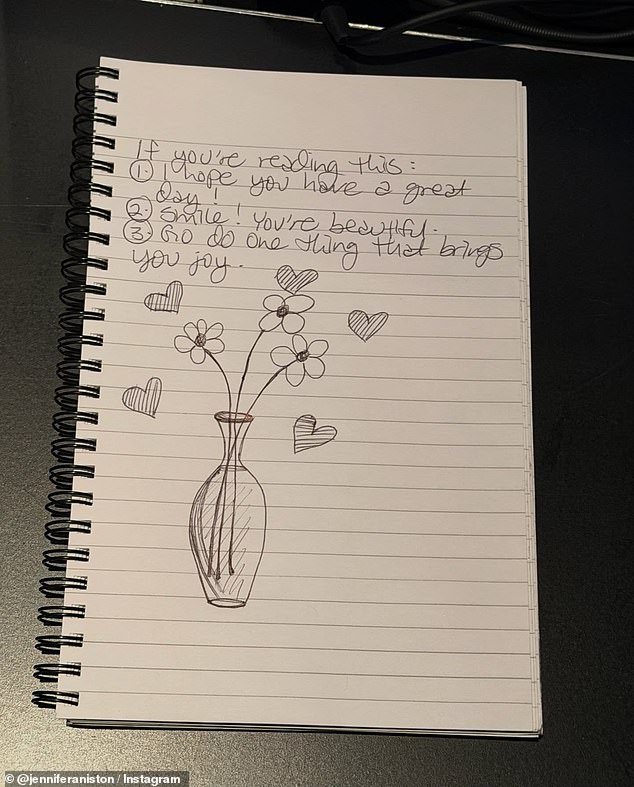 If you're reading this:
① I hope you have a great
day!
② Smile! You're beautiful.
③ Go do one thing that brings
you joy.
© @jenniferaniston / Instagram